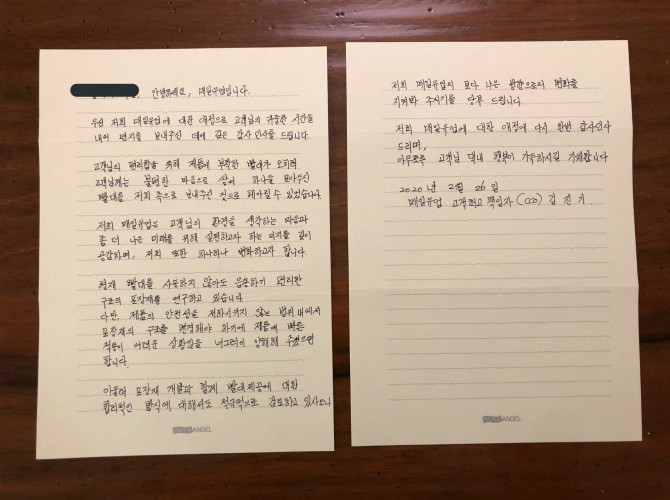 안녕하세요, 매일유업입니다.
우선 저희 매일유업에 대한 애정으로 고객님의 귀중한 시간을
내어 편지를 보내주신 데에 깊은 감사 인사를 드립니다.
고객님의 편리함을 위해 제품에 부착한 빨대가 오히려
고객님께는 불편한 마음으로 쌓여 하나둘 모아두신
빨대를 저희 쪽으로 보내주신 것으로 헤아릴 수 있었습니다.
저희 매일유업은 고객님의 환경을 생각하는 마음과
좀 더 나은 미래를 위해 실천하고자 하는 의지를 깊이
공감하며, 저희 또한 하나하나 변화하고자 합니다.
현재 빨대를 사용하지 않아도 음용하기 편리한
구조의 포장재를 연구하고 있습니다
다만, 제품의 안전성을 저하시키지 않는 범위 내에서
포장재의 구조를 변경해야 하기에 제품에 빠른
적용이 어려운 상황임을 너그러이 양해해 주셨으면
합니다.
아울러 포장재 개발과 함께 빨대제공에 대한
합리적인 방식에 대해서도 적극적으로 검토하고 있사오니
ANGEL
저희 매일유업의 보다 나은 방향으로의 변화를
지켜봐 주시기를 당부 드립니다.
저희 매일유업에 대한 애정에 다시 한번 감사인사
드리며,
아무쪼록 고객님 댁내 행복이 가득하시길 기원합니다
2020년 2월 26일
매일유업 고객최고책임자 (CCO) 김진기.
ANGEL